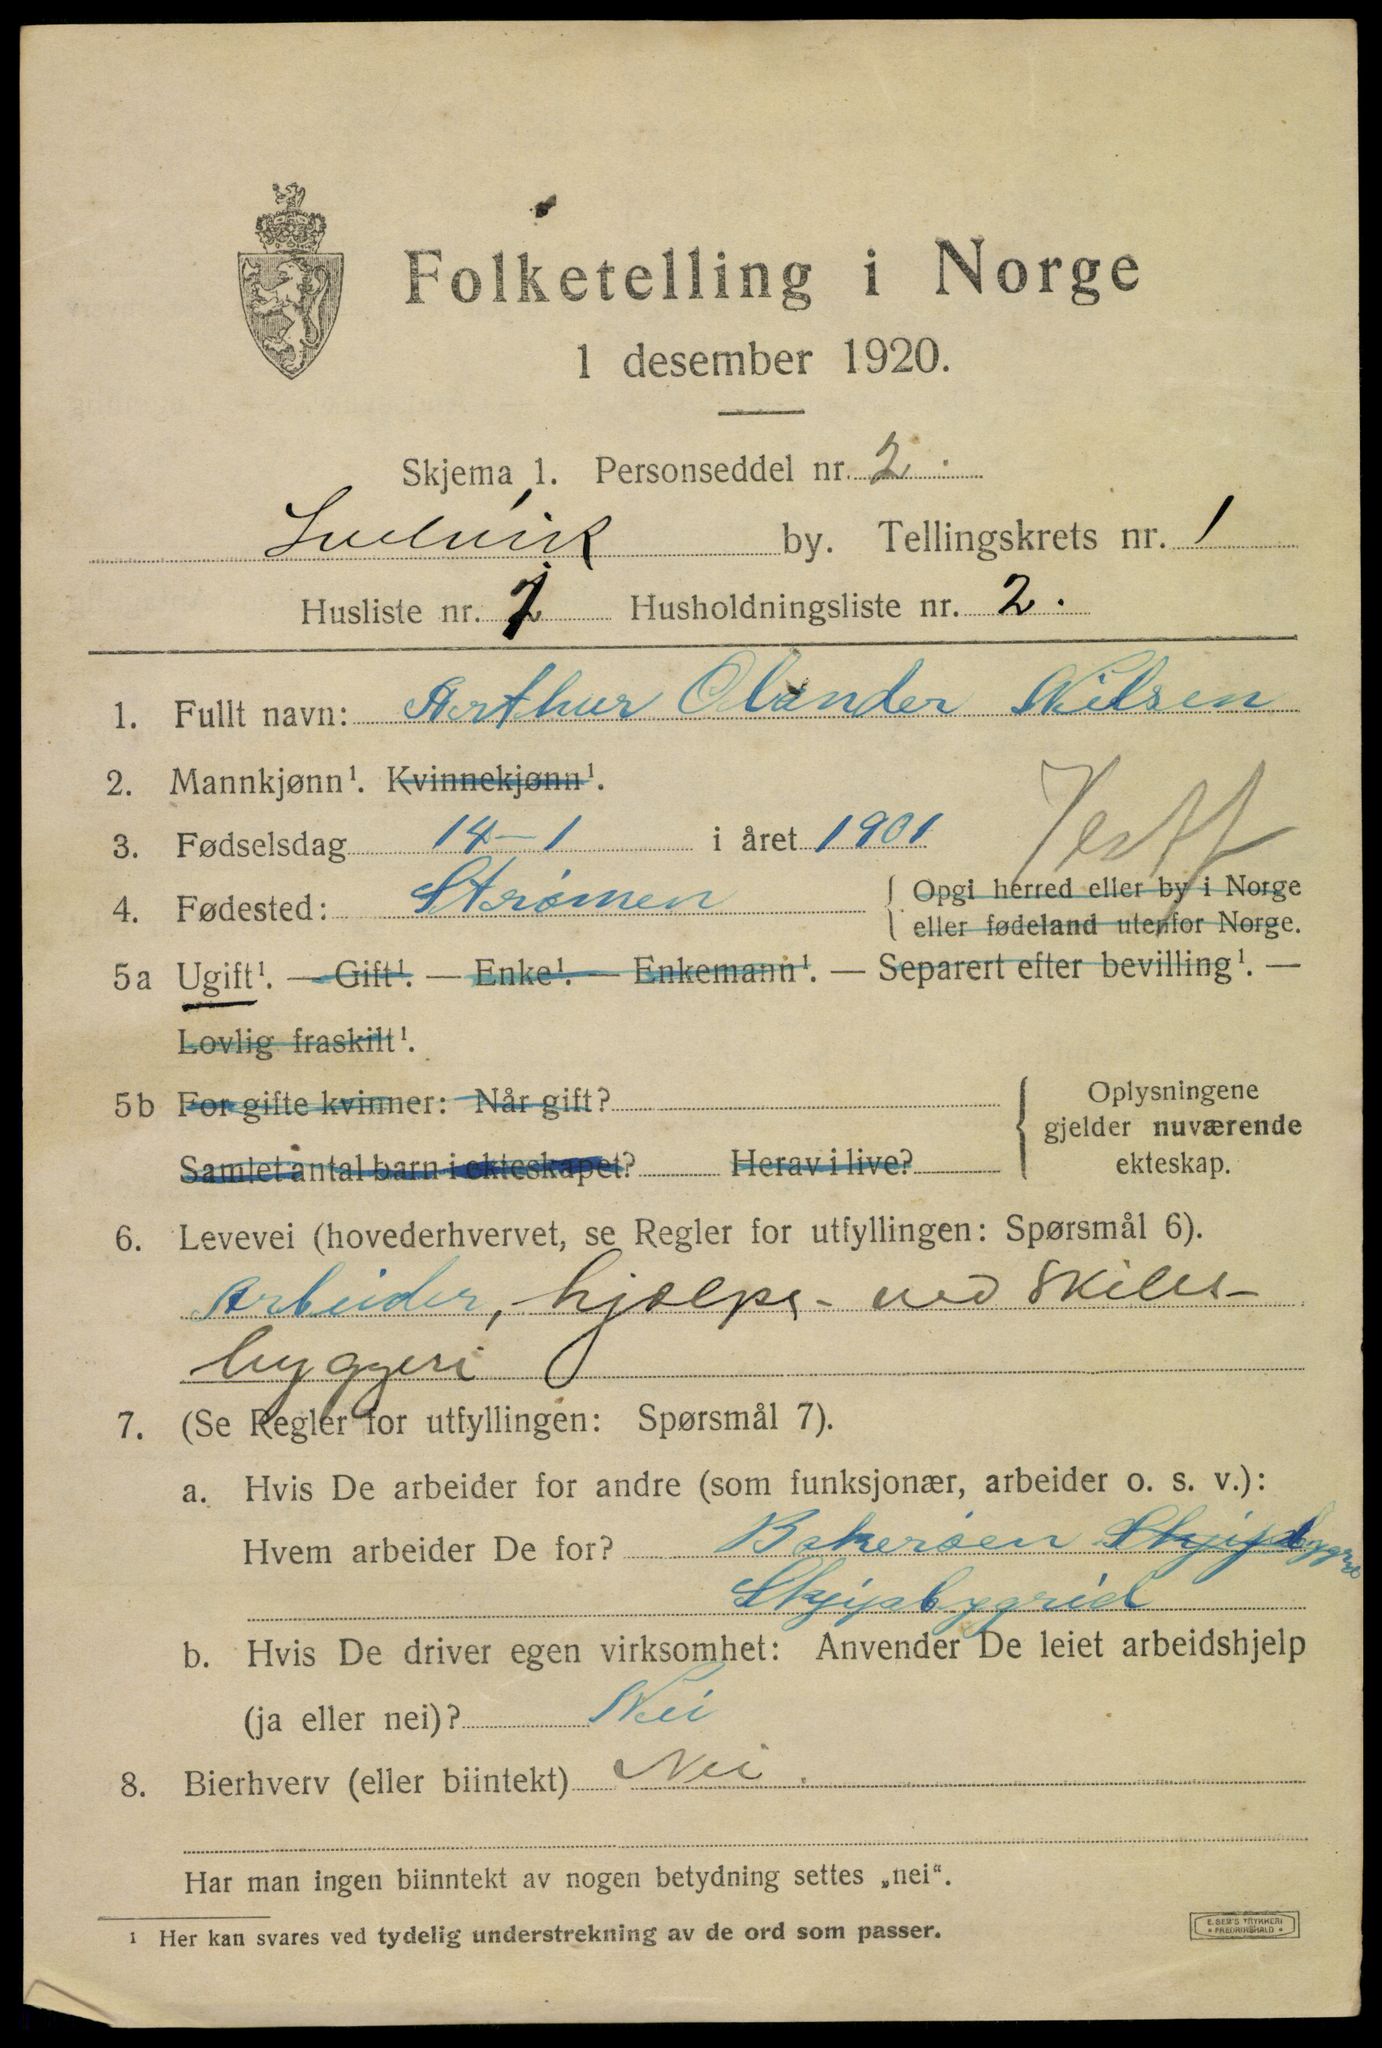 Folketelling i Norge
1 desember 1920.
Skjema 1. Personseddel nr. 2.
Svelvik by. Tellingskrets nr. 1
Husliste nr. Husholdningsliste nr. 2.
1. Fullt navn: Arthur Olander Nilsen
2. Mannkjønn¹. Kvinnekjønn¹.
3. Fødselsdag 14-1 i året 1901
4. Fødested: Strømen { Opgi herred eller by i Norge
eller fødeland utenfor Norge.
5a Ugift¹. — Gift¹. — Enke¹. — Enkemann¹. — Separert efter bevilling¹. —
Lovlig fraskilt¹.
5b For gifte kvinner: Når gift?
Samlet antal barn i ekteskapet? Herav i live?
Oplysningene
gjelder nuværende
ekteskap.
6. Levevei (hovederhvervet, se Regler for utfyllingen: Spørsmål 6).
Arbeider, hjælps- ved skibs-
byggeri
7. (Se Regler for utfyllingen: Spørsmål 7).
a. Hvis De arbeider for andre (som funksjonær, arbeider o. s. v.):
Hvem arbeider De for? Bokerøen
Skjipsbygried
b. Hvis De driver egen virksomhet: Anvender De leiet arbeidshjelp
(ja eller nei)? Nei
8. Bierhverv (eller biintekt) Nei.
Har man ingen biinntekt av nogen betydning settes „nei“.
¹ Her kan svares ved tydelig understrekning av de ord som passer.
E. SEM'S TRYKKERI
FREDRIKSHALD